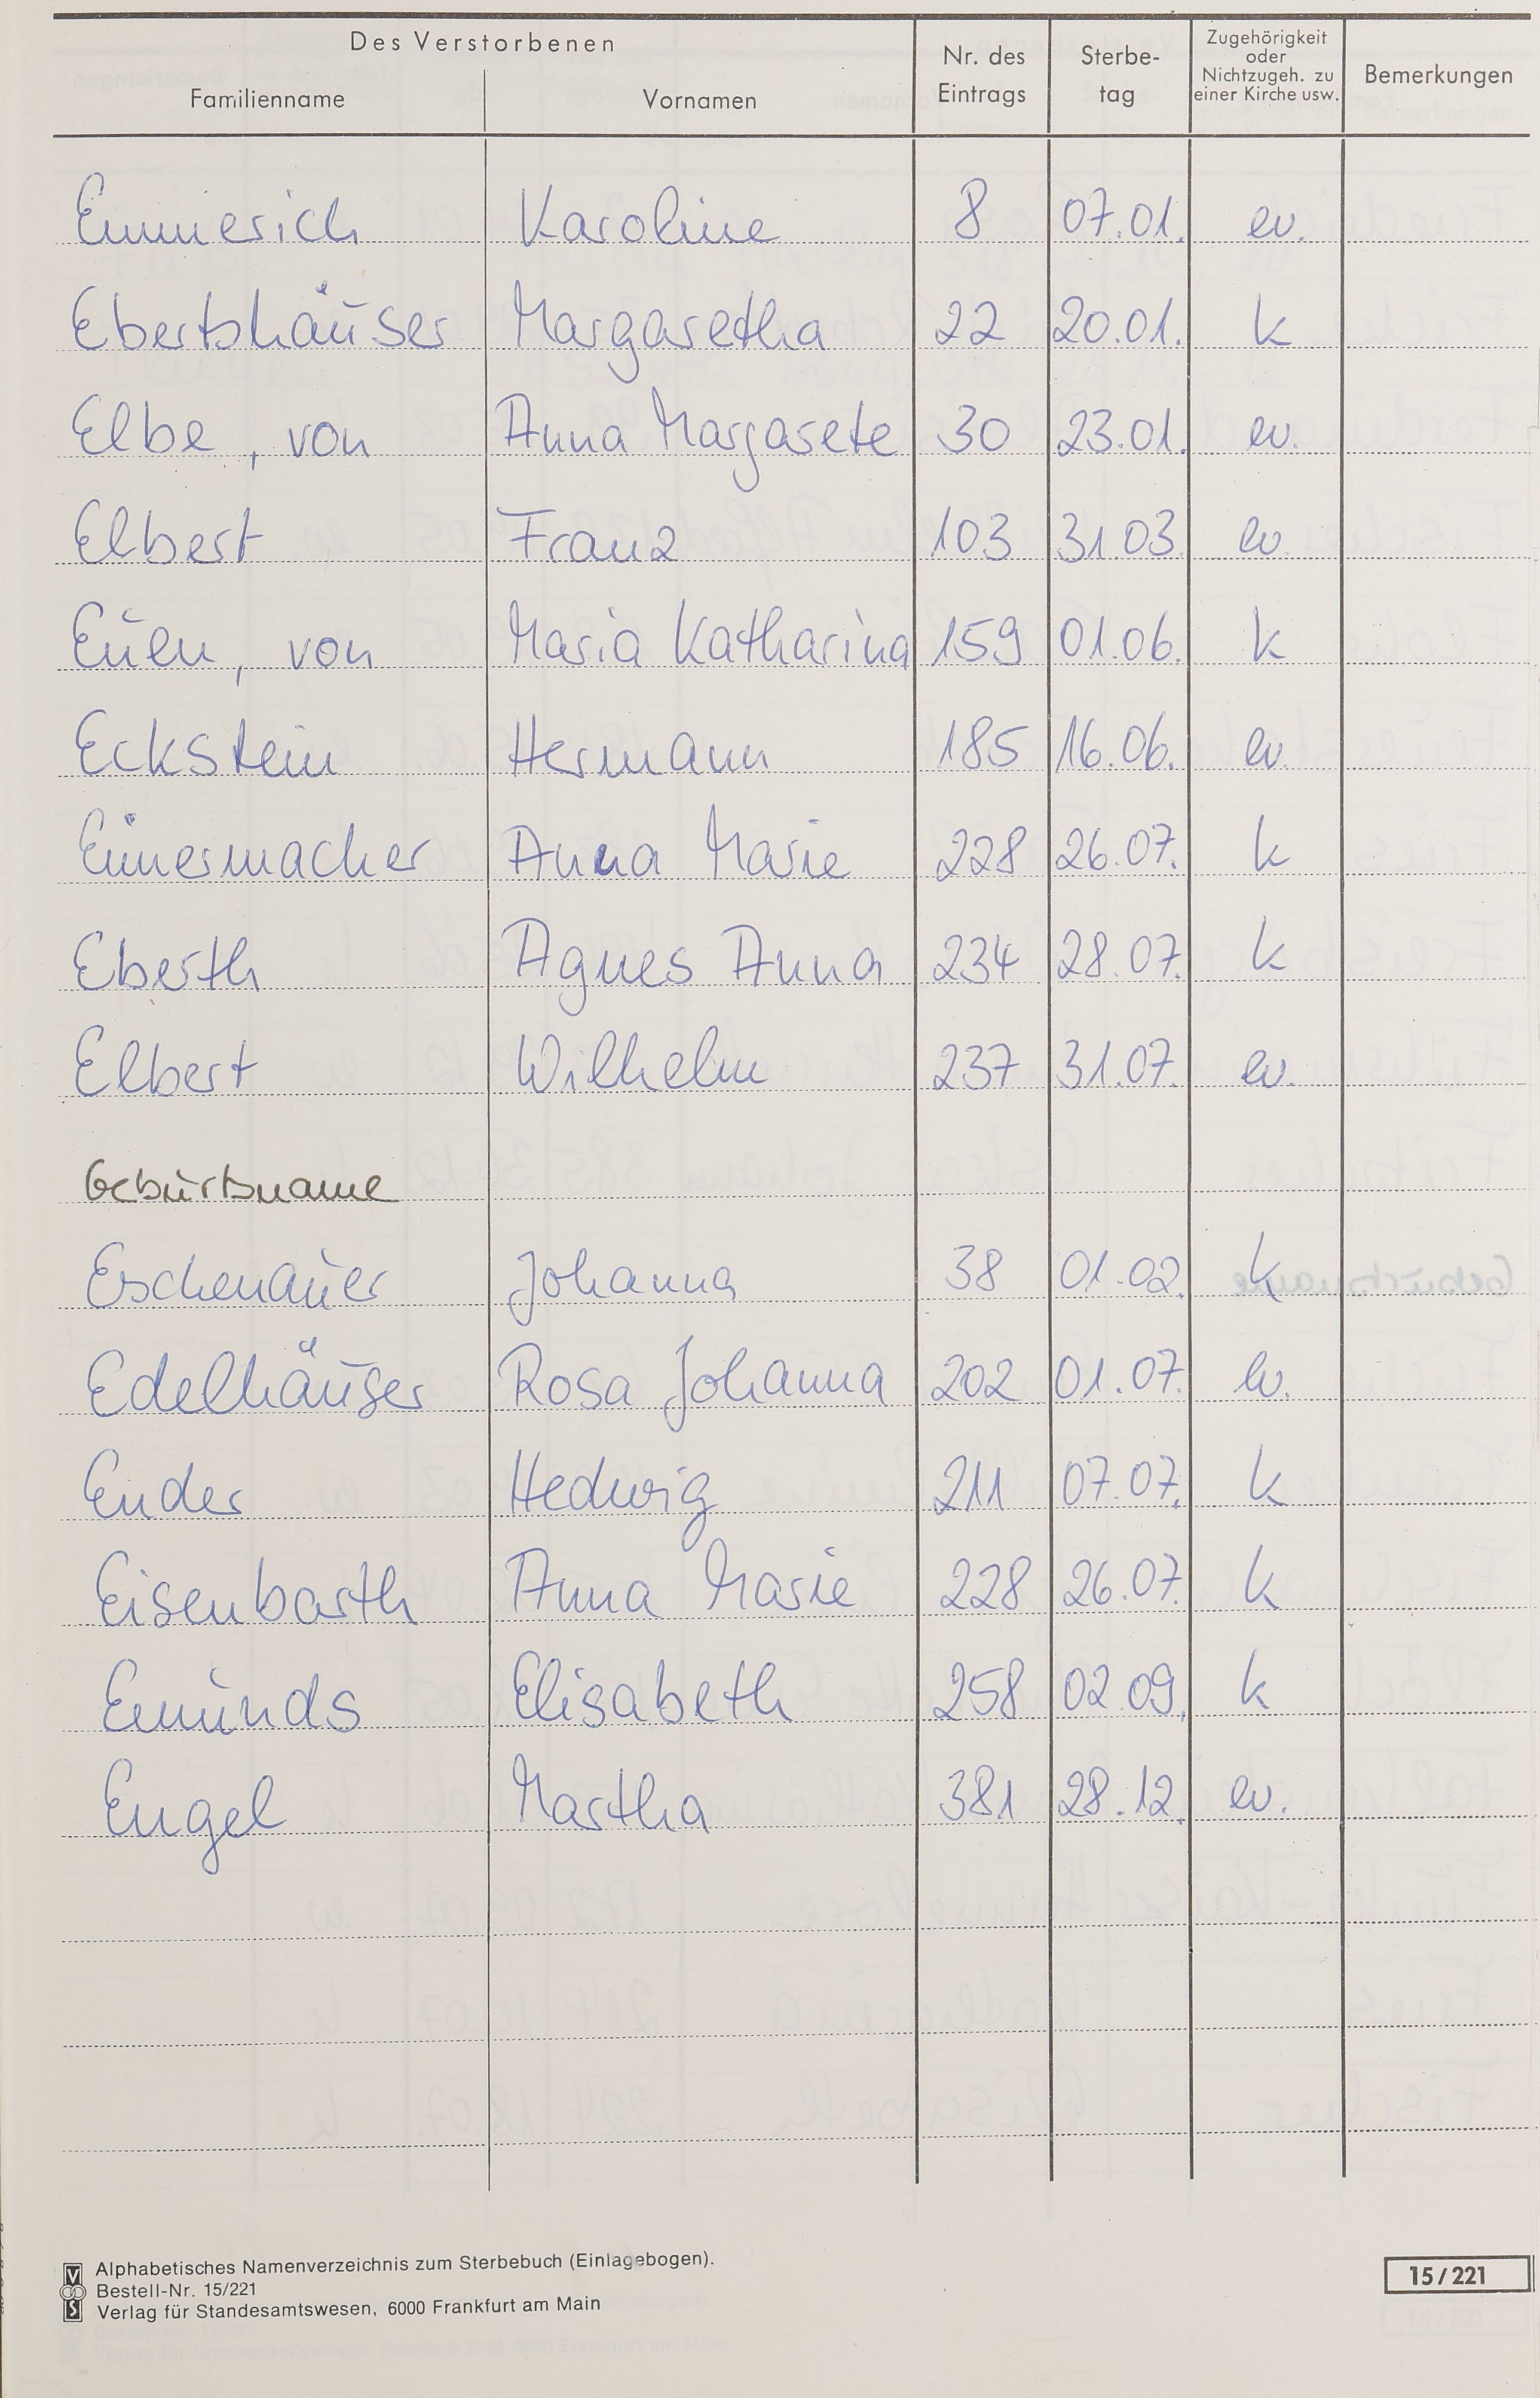 Des Verstorbenen
Familienname Vornamen Nr. des Eintrags Sterbe-tag Zugehörigkeit oder Nichtzugeh. zu einer Kirche usw. Bemerkungen
Emmerich Karoline 8 07.01. ev.
Ebertshäuser Margaretha 22 20.01. k
Elbe, von Anna Margarete 30 23.01. ev.
Elbert Franz 103 31.03. ev
Euen, von Maria Katharina 159 01.06. k
Eckstein Hermann 185 16.06. ev.
Eimermacher Anna Marie 228 26.07. k
Eberth Agnes Anna 234 28.07. k
Elbert Wilhelm 237 31.07. ev.
Geburtsname
Eschenauer Johanna 38 01.02. k
Edelhäußer Rosa Johanna 202 01.07. ev.
Ender Hedwig 211 07.07. k
Eisenbarth Anna Marie 228 26.07. k
Emunds Elisabeth 258 02.09. k
Engel Martha 381 28.12. ev.
Alphabetisches Namenverzeichnis zum Sterbebuch (Einlagebogen).
Bestell-Nr. 15/221
Verlag für Standesamtswesen, 6000 Frankfurt am Main
15/221